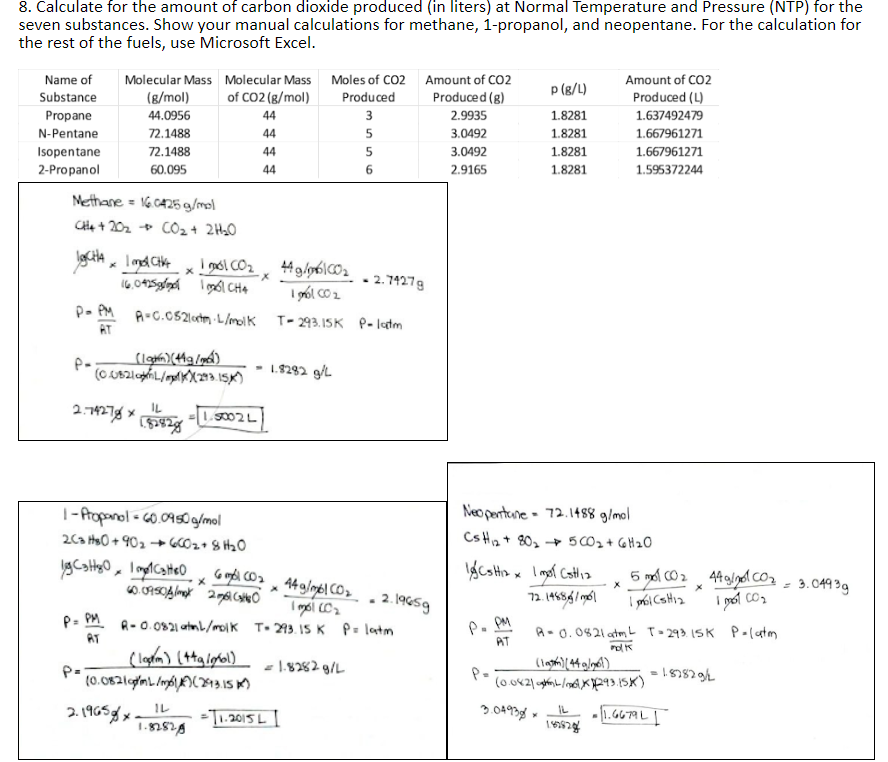 8. Calculate for the amount of carbon dioxide produced (in liters) at Normal Temperature and Pressure (NTP) for the
seven substances. Show your manual calculations for methane, 1-propanol, and neopentane. For the calculation for
the rest of the fuels, use Microsoft Excel.
Name of Substance | Molecular Mass (g/mol) | Molecular Mass of CO2 (g/mol) | Moles of CO2 Produced | Amount of CO2 Produced (g) | p (g/L) | Amount of CO2 Produced (L)
Propane 44.0956 44 3 2.9935 1.8281 1.637492479
N-Pentane 72.1488 44 5 3.0492 1.8281 1.667961271
Isopentane 72.1488 44 5 3.0492 1.8281 1.667961271
2-Propanol 60.095 44 6 2.9165 1.8281 1.595372244
Methane = 16.0425 g/mol
CH4 + 2O2 → CO2 + 2H2O
1gCH4 × 1 mol CH4 / 16.0425g/mol × 1 mol CO2 / 1 mol CH4 × 44g/mol CO2 / 1 mol CO2 = 2.7427g
P = PM / RT R=0.0821atm·L/molK T= 293.15K P= 1atm
P= (1atm)(44g/mol) / (0.0821atmL/molK)(293.15K) = 1.8282 g/L
2.7427g × 1L / 1.8282g = 1.5002L
1-Propanol = 60.0950g/mol
2C3H8O + 9O2 → 6CO2 + 8H2O
1gC3H8O × 1molC3H8O / 60.0950g/mol × 6 mol CO2 / 2molC3H8O × 44g/mol CO2 / 1 mol CO2 = 2.1965g
P= PM / RT R= 0.0821 atmL/molK T= 293.15 K P= 1atm
P= (1atm) (44g/mol) / (0.0821atmL/molK)(293.15K) = 1.8282 g/L
2.1965g × 1L / 1.8282g = 1.2015L
Neopentane = 72.1488 g/mol
C5H12 + 8O2 → 5CO2 + 6H2O
1gC5H12 × 1mol C5H12 / 72.1488g/mol × 5 mol CO2 / 1molC5H12 × 44g/mol CO2 / 1 mol CO2 = 3.0493g
P= PM / RT R= 0.0821 atmL / molK T= 293.15K P=1atm
P= (1atm)(44g/mol) / (0.0821 atmL/mol.K)(293.15K) = 1.8282g/L
3.0493g × 1L / 1.8282g = 1.6679L